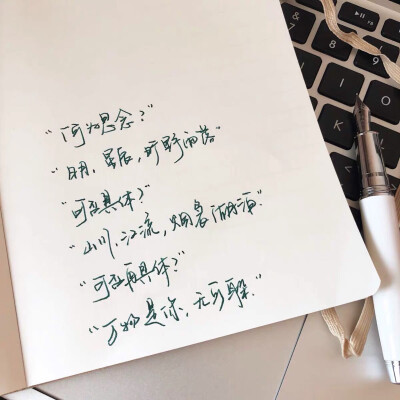 “何为思念？”
“日月，星辰，旷野雨落”
“可否具体？”
“山川，江流，烟袅湖泊。”
“可否再具体？”
“万物是你，无可躲。”